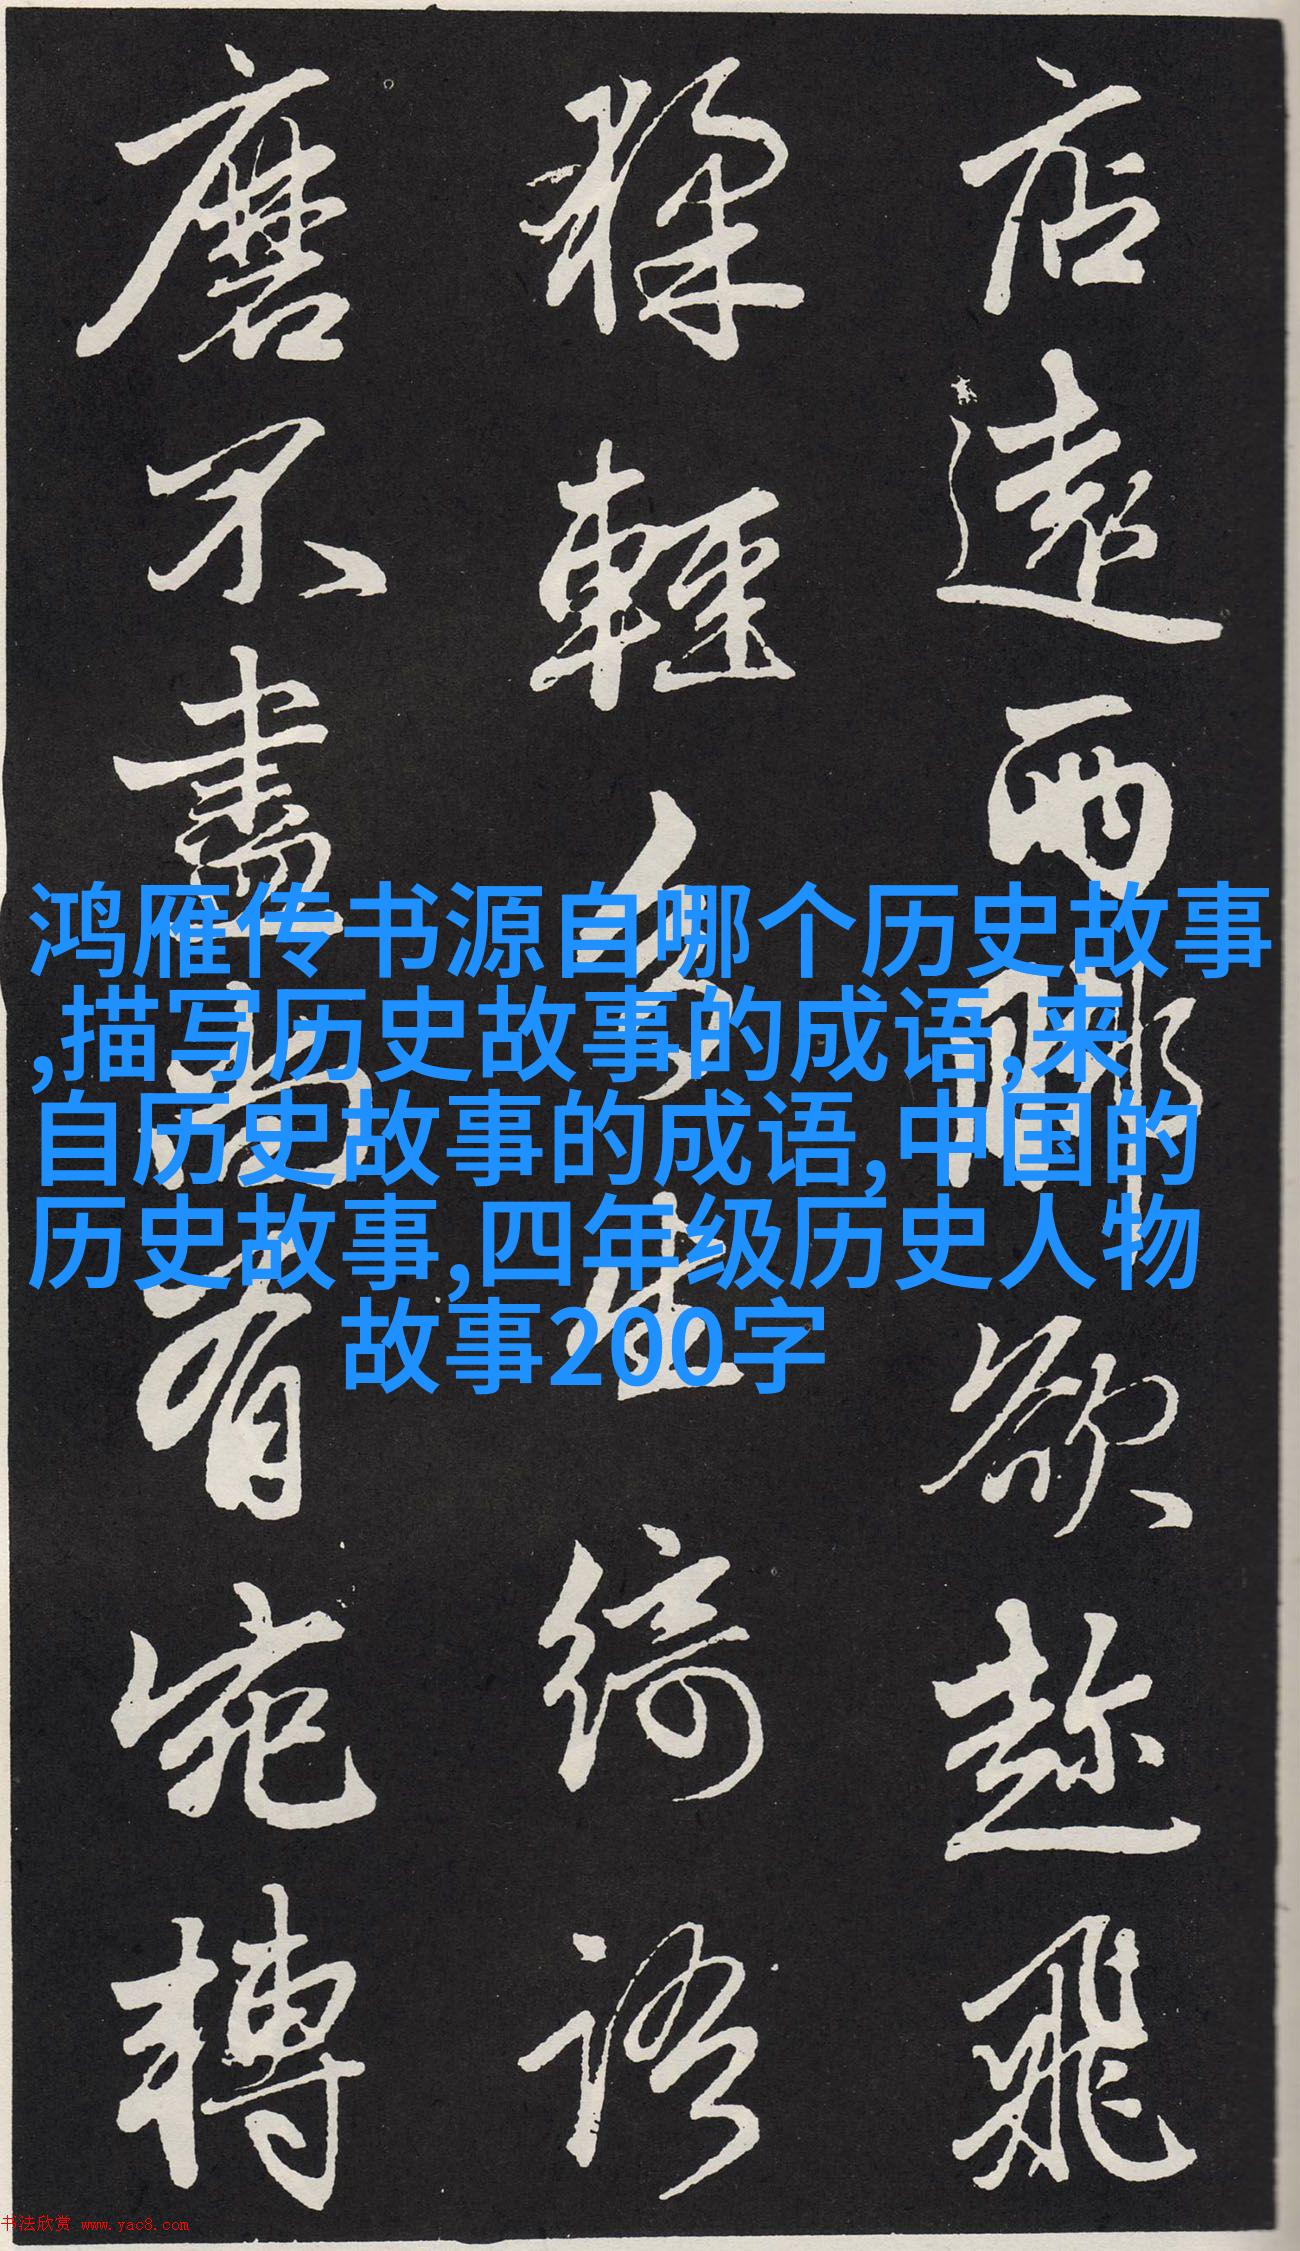 鸿雁传书源自哪个历史故事
,描写历史故事的成语,来
自历史故事的成语,中国的
历史故事,四年级历史人物
故事200字
店遠兩腳欲趂飛
猱輕多生綺語
磨不盡尚有宛轉
书法欣赏 www.yac8.com